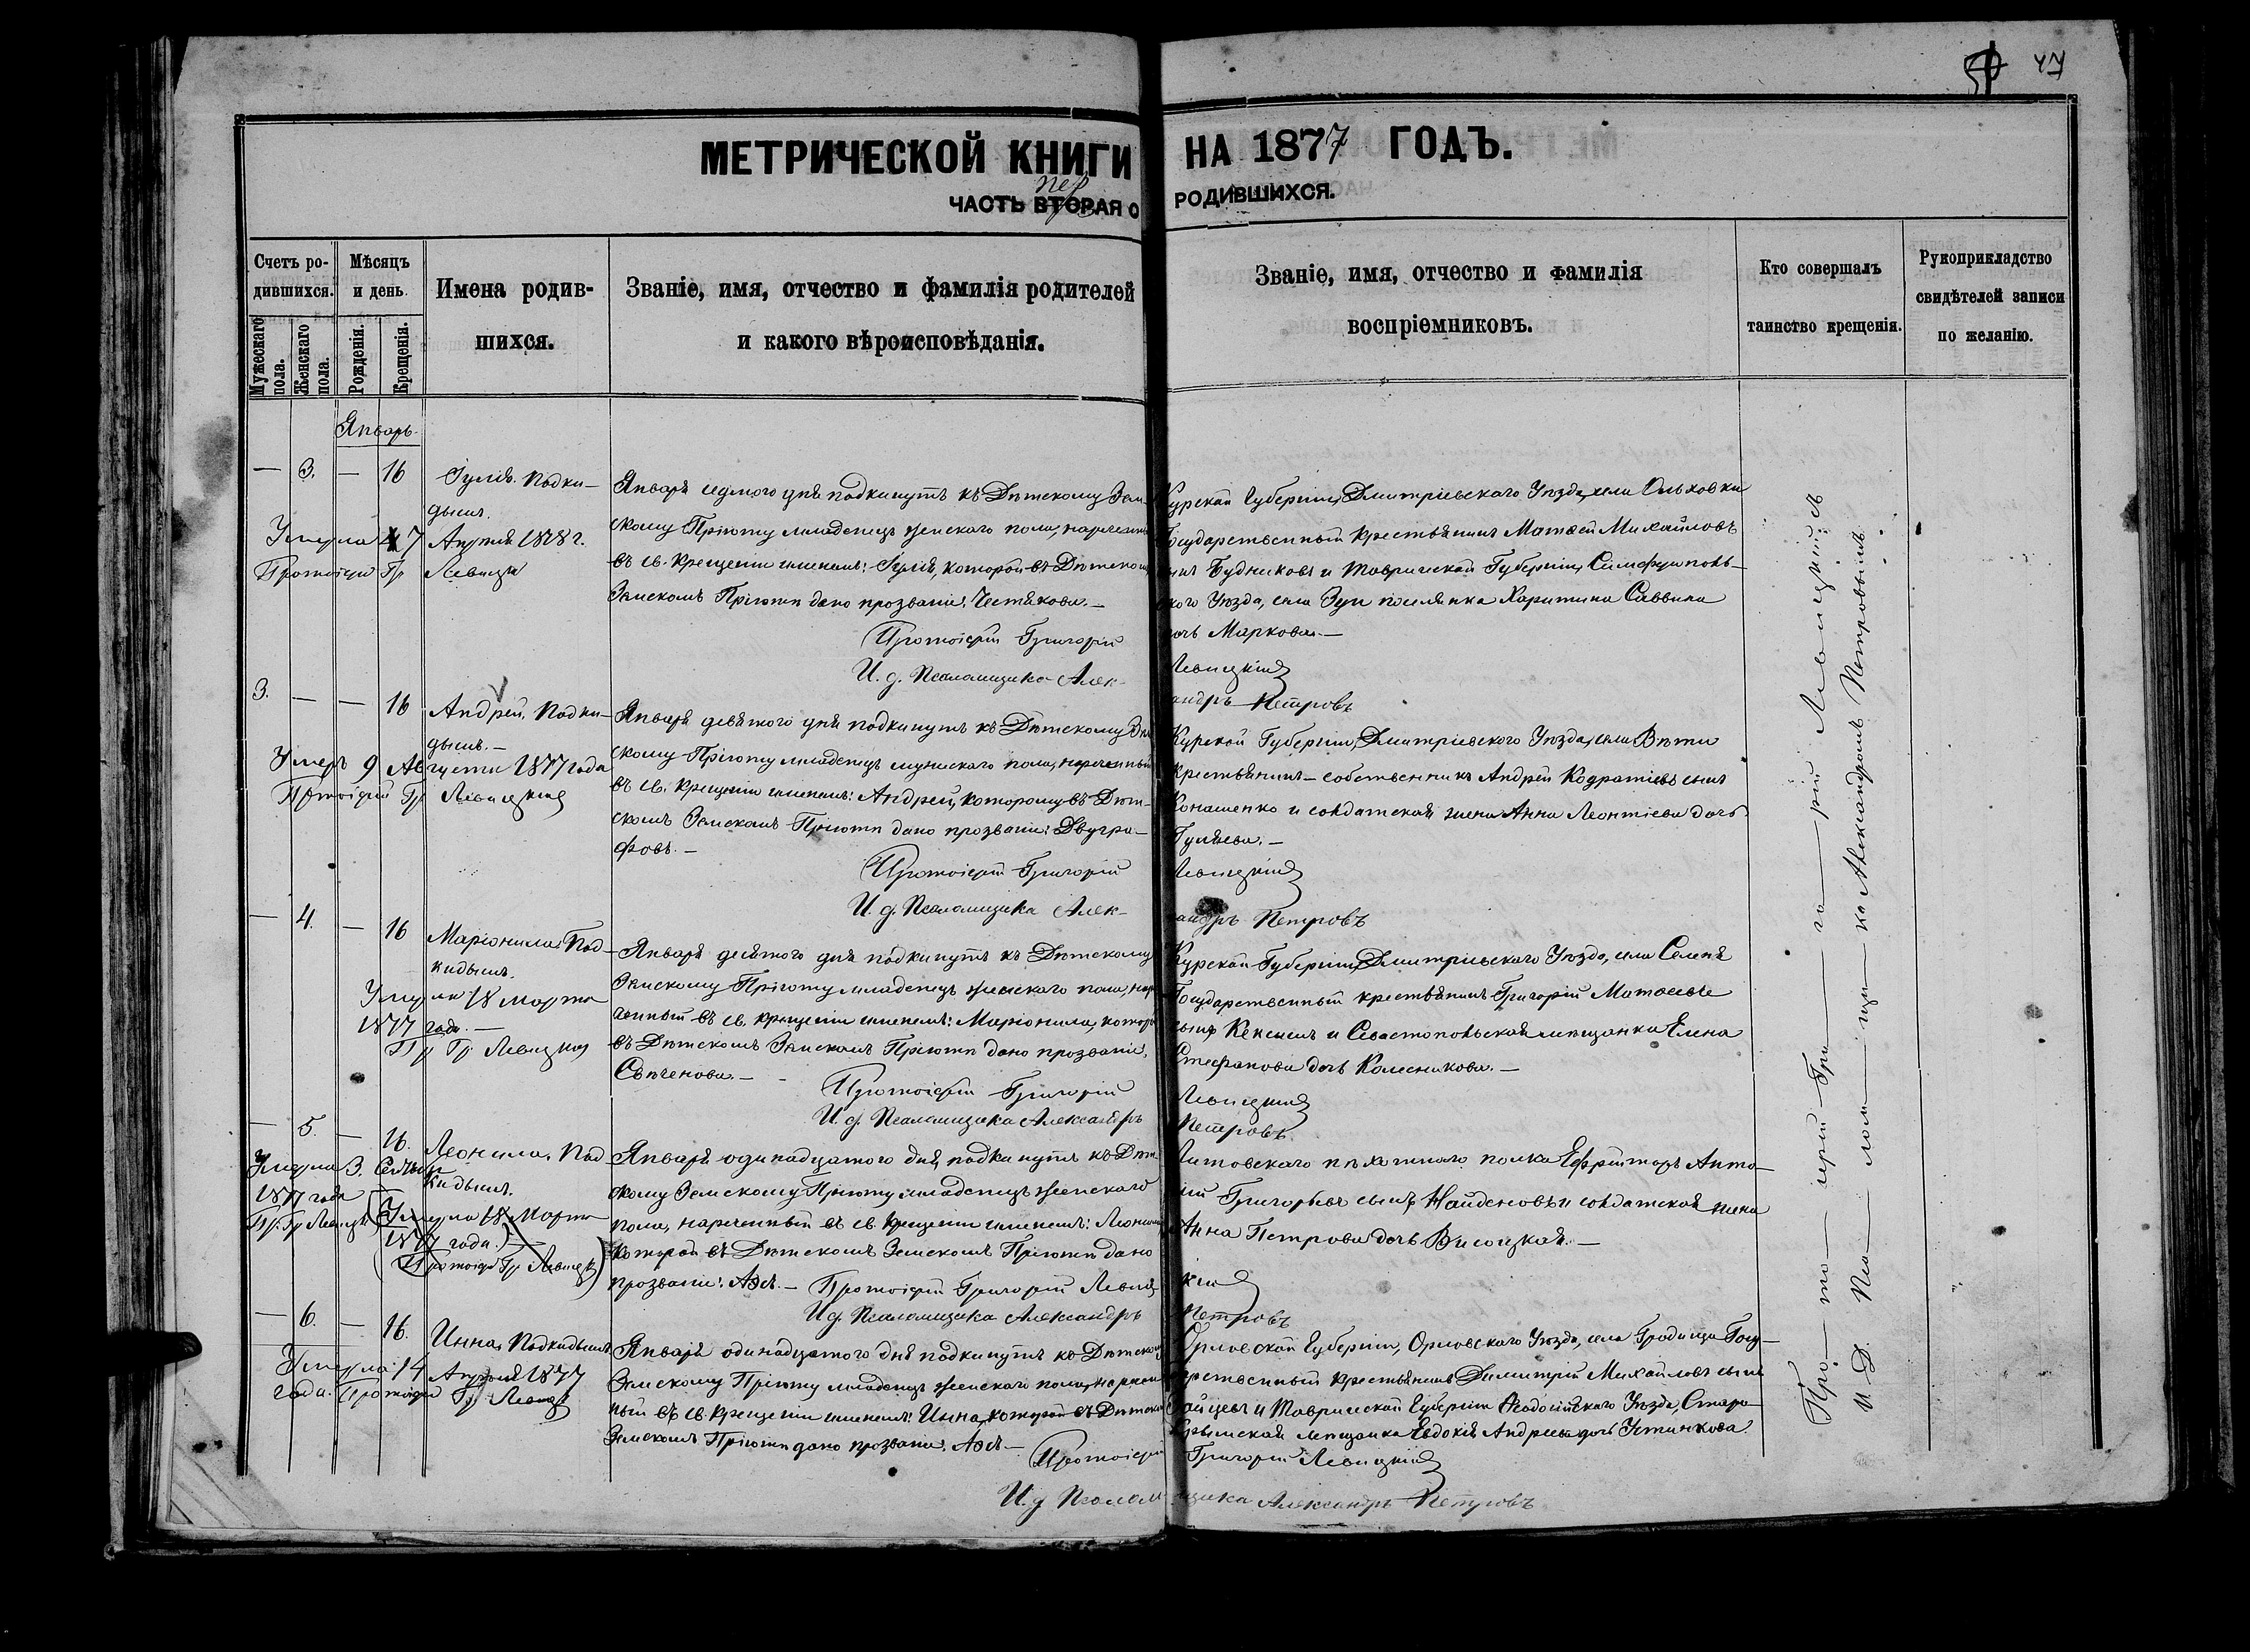 47
МЕТРИЧЕСКОЙ КНИГИ НА 1877 ГОДЪ.
пер
ЧАСТЬ ВТОРАЯ О РОДИВШИХСЯ.
Счетъ ро-
дившихся.
Мужескаго пола.
Женскаго пола.
Мѣсяцъ
и день.
Рожденія.
Крещенія.
Имена родив-
шихся.
Званіе, имя, отчество и фамилія родителей
и какого вѣроисповѣданія.
Званіе, имя, отчество и фамилія
воспріемниковъ.
Кто совершалъ
таинство крещенія.
Рукоприкладство
свидѣтелей записи
по желанію.
Январь.
— 3. — 16
Іулія. Подки-
дышъ.
Умерла 7 Апреля 1878 г.
Протоіерей Гр Левицкі
Января седмого дня подкинутъ къ Дѣтскому Зем-
скому Пріюту младенецъ женскаго пола, нареченный
въ св. крещеніи именемъ: Іулія, которой въ Дѣтскомъ
Земскомъ Пріютѣ дано прозваніе: Честякова. —
Протоіерей Григорій
И. д. Псаломщика Алек-
Курской Губерніи, Дмитріевскаго Уѣзда, села Ольховки
Государственный крестьянинъ Матѳей Михайловъ
сынъ Будниковъ и Таврической Губерніи, Симферополь-
скаго Уѣзда, села Зуи поселянка Харитина Саввина
дочь Маркова. —
Левицкій
сандръ Петровъ
3. — — 16
Андрей. Подки-
дышъ. —
Умеръ 9 Августа 1877 года
Протоіерей Гр Левицкій
Января девятого дня подкинутъ къ Дѣтскому Зем-
скому Пріюту младенецъ мужскаго пола, нареченный
въ св. крещеніи именемъ: Андрей, которому въ Дѣт-
скомъ Земскомъ Пріютѣ дано прозваніе: Двугра-
фовъ. —
Протоіерей Григорій
И. д. Псаломщика Алек-
Курской Губерніи, Дмитріевского Уѣзда, села Вѣти
крестьянинъ-собственникъ Андрей Кодратіевъ сынъ
Конашенко и солдатская жена Анна Леонтіева дочь
Гуляева. —
Левицкій
сандръ Петровъ
— 4. — 16
Маріонила. Под-
кидышъ.
Умерла 18 Марта
1877 года. —
Пр Гр Левицкій
Января десятого дня подкинутъ къ Дѣтскому
Земскому Пріюту младенецъ женскаго пола, наре-
ченный въ св. крещеніи именемъ: Маріонила, которой
въ Дѣтскомъ Земскомъ Пріютѣ дано прозваніе:
Свѣченова. —
Протоіерей Григорій
И. д. Псаломщика Александръ
Курской Губерніи, Дмитріевскаго Уѣзда, села
Государственный крестьянинъ Григорій Матѳеевъ
сынъ и Севастопольская мѣщанка Елена
Стефанова дочь Колесникова. —
Левицкій
Петровъ
— 5. — 16.
Леонила. Под-
кидышъ.
Умерла 3.
1877 года
Пр. Гр Левицкі
(Умерла 18 Марта
1877 года.) —
(Протоіерей Гр Левицкі)
Января одинадцатого дня подкинутъ къ Дѣт-
скому Земскому Пріюту младенецъ женскаго
пола, нареченный въ св. крещеніи именемъ: Леонила,
которой въ Дѣтскомъ Земскомъ Пріютѣ дано
прозваніе: — Протоіерей Григорій Левиц-
И. д. Псаломщика Александръ
Литовскаго пѣхотнаго полка Ефрейторъ Анто-
ній Григорьевъ сынъ Найденовъ и солдатская жена
Анна Петрова дочь Висоцкая. —
кій
Петровъ
— 6. — 16.
Инна, Подкидышъ
Умерла 14 Апреля 1877
года. Протоіерей Гр. Левицкі
Января одинадцатого дня подкинутъ къ Дѣтскому
Земскому Пріюту младенецъ женскаго пола, наречен-
ный въ св. крещеніи именемъ: Инна, которой въ Дѣтскомъ
Земскомъ Пріютѣ дано прозваніе: —
Протоіерей
И. д Псалом-
Орловской Губерніи, Орловскаго Уѣзда, села Гродища Госу-
дарственный крестьянинъ Димитрій Михайловъ сынъ
Зайцевъ и Таврической Губерніи Ѳеодосійскаго Уѣзда, Старо-
Крымская мѣщанка Евдокія Андреева дочь Устинкова.
Григорій Левицкій
щика Александръ Петровъ
Про—то—іерей Гри—го—рій Левицкій съ
И. Д. Пса—лом—щи—ка Александромъ Петровымъ.